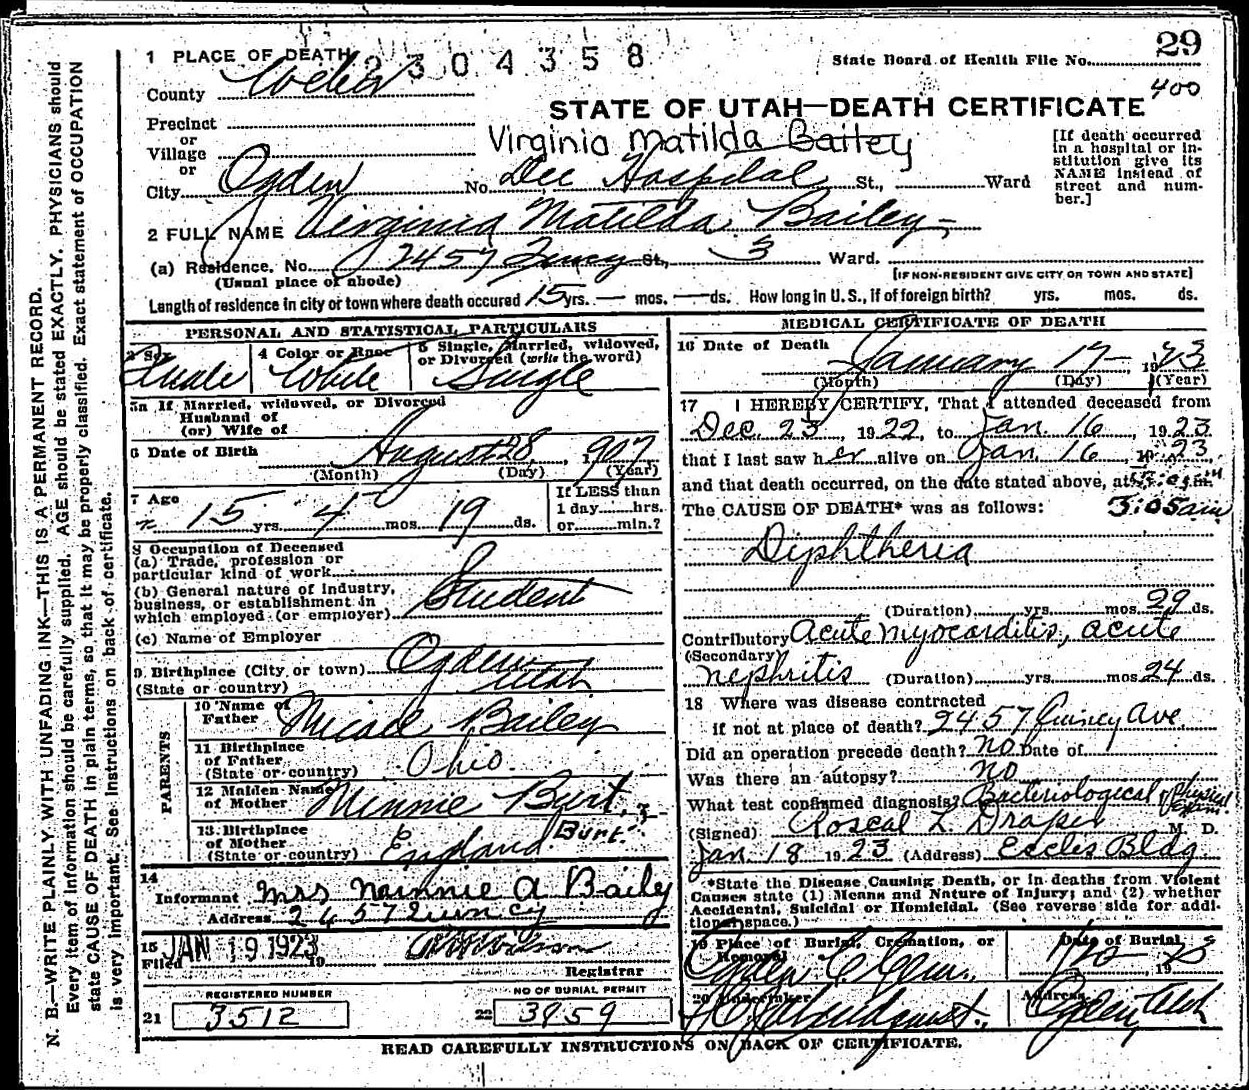 29
1 PLACE OF DEATH 2304358
State Board of Health File No.
400
County Weber
STATE OF UTAH—DEATH CERTIFICATE
Precinct
or
Village
or
Virginia Matilda Bailey
[If death occurred in a hospital or institution give its NAME instead of street and number.]
City Ogden No. Dee Hospital St., Ward
2 FULL NAME Virginia Matilda Bailey
(a) Residence. No. 2457 Quincy St., 3 Ward.
(Usual place of abode) [IF NON-RESIDENT GIVE CITY OR TOWN AND STATE]
Length of residence in city or town where death occured 15 yrs. — mos. — ds. How long in U. S., if of foreign birth? yrs. mos. ds.
PERSONAL AND STATISTICAL PARTICULARS
3 Sex Female
4 Color or Race White
5 Single, Married, widowed, or Divorced (write the word) Single
5a If Married, widowed, or Divorced
Husband of
(or) Wife of
6 Date of Birth August 28, 1907
(Month) (Day) (Year)
7 Age 15 yrs. 4 mos. 19 ds.
If LESS than
1 day......hrs.
or......min.?
8 Occupation of Deceased
(a) Trade, profession or
particular kind of work
(b) General nature of industry,
business, or establishment in
which employed (or employer) Student
(c) Name of Employer
9 Birthplace (City or town) Ogden
(State or country) Utah
PARENTS
10 Name of Father Bailey
11 Birthplace
of Father
(State or country) Ohio.
12 Maiden Name
of Mother Minnie Burt
13 Birthplace
of Mother
(State or country) England Burt
14
Informant Mrs Minnie A Baily
Address 2457 Quincy
15 JAN 19 1923
Filed 19
Registrar
REGISTERED NUMBER
21 3512
NO OF BURIAL PERMIT
22 3959
MEDICAL CERTIFICATE OF DEATH
16 Date of Death January 17 1923
(Month) (Day) (Year)
17 I HEREBY CERTIFY, That I attended deceased from
Dec. 23, 1922, to Jan. 16, 1923
that I last saw her alive on Jan 16, 1923
and that death occurred, on the date stated above, at
The CAUSE OF DEATH* was as follows: 3:05am
Diphtheria
(Duration) yrs. mos. 29 ds.
Contributory Acute myocarditis, acute
(Secondary)
nephritis (Duration) yrs. mos. 24 ds.
18 Where was disease contracted
if not at place of death? 2457 Quincy Ave.
Did an operation precede death? no Date of
Was there an autopsy? no
What test confirmed diagnosis? Bacteriological & physical exam.
(Signed) Roscal L. Draper M. D.
Jan. 18 1923 (Address) Eccles Bldg
*State the Disease Causing Death, or in deaths from Violent
Causes state (1) Means and Nature of Injury; and (2) whether
Accidental, Suicidal or Homicidal. (See reverse side for additional space.)
19 Place of Burial, Cremation, or Removal Ogden C. Cem.
Date of Burial
20 Undertaker
Address Ogden Utah
READ CAREFULLY INSTRUCTIONS ON BACK OF CERTIFICATE.
N. B.—WRITE PLAINLY WITH UNFADING INK—THIS IS A PERMANENT RECORD.
Every item of information should be carefully supplied. AGE should be stated EXACTLY. PHYSICIANS should
state CAUSE OF DEATH in plain terms, so that it may be properly classified. Exact statement of OCCUPATION
is very important. See Instructions on back of certificate.